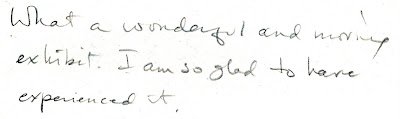 What a wonderful and moving
exhibit. I am so glad to have
experienced it.